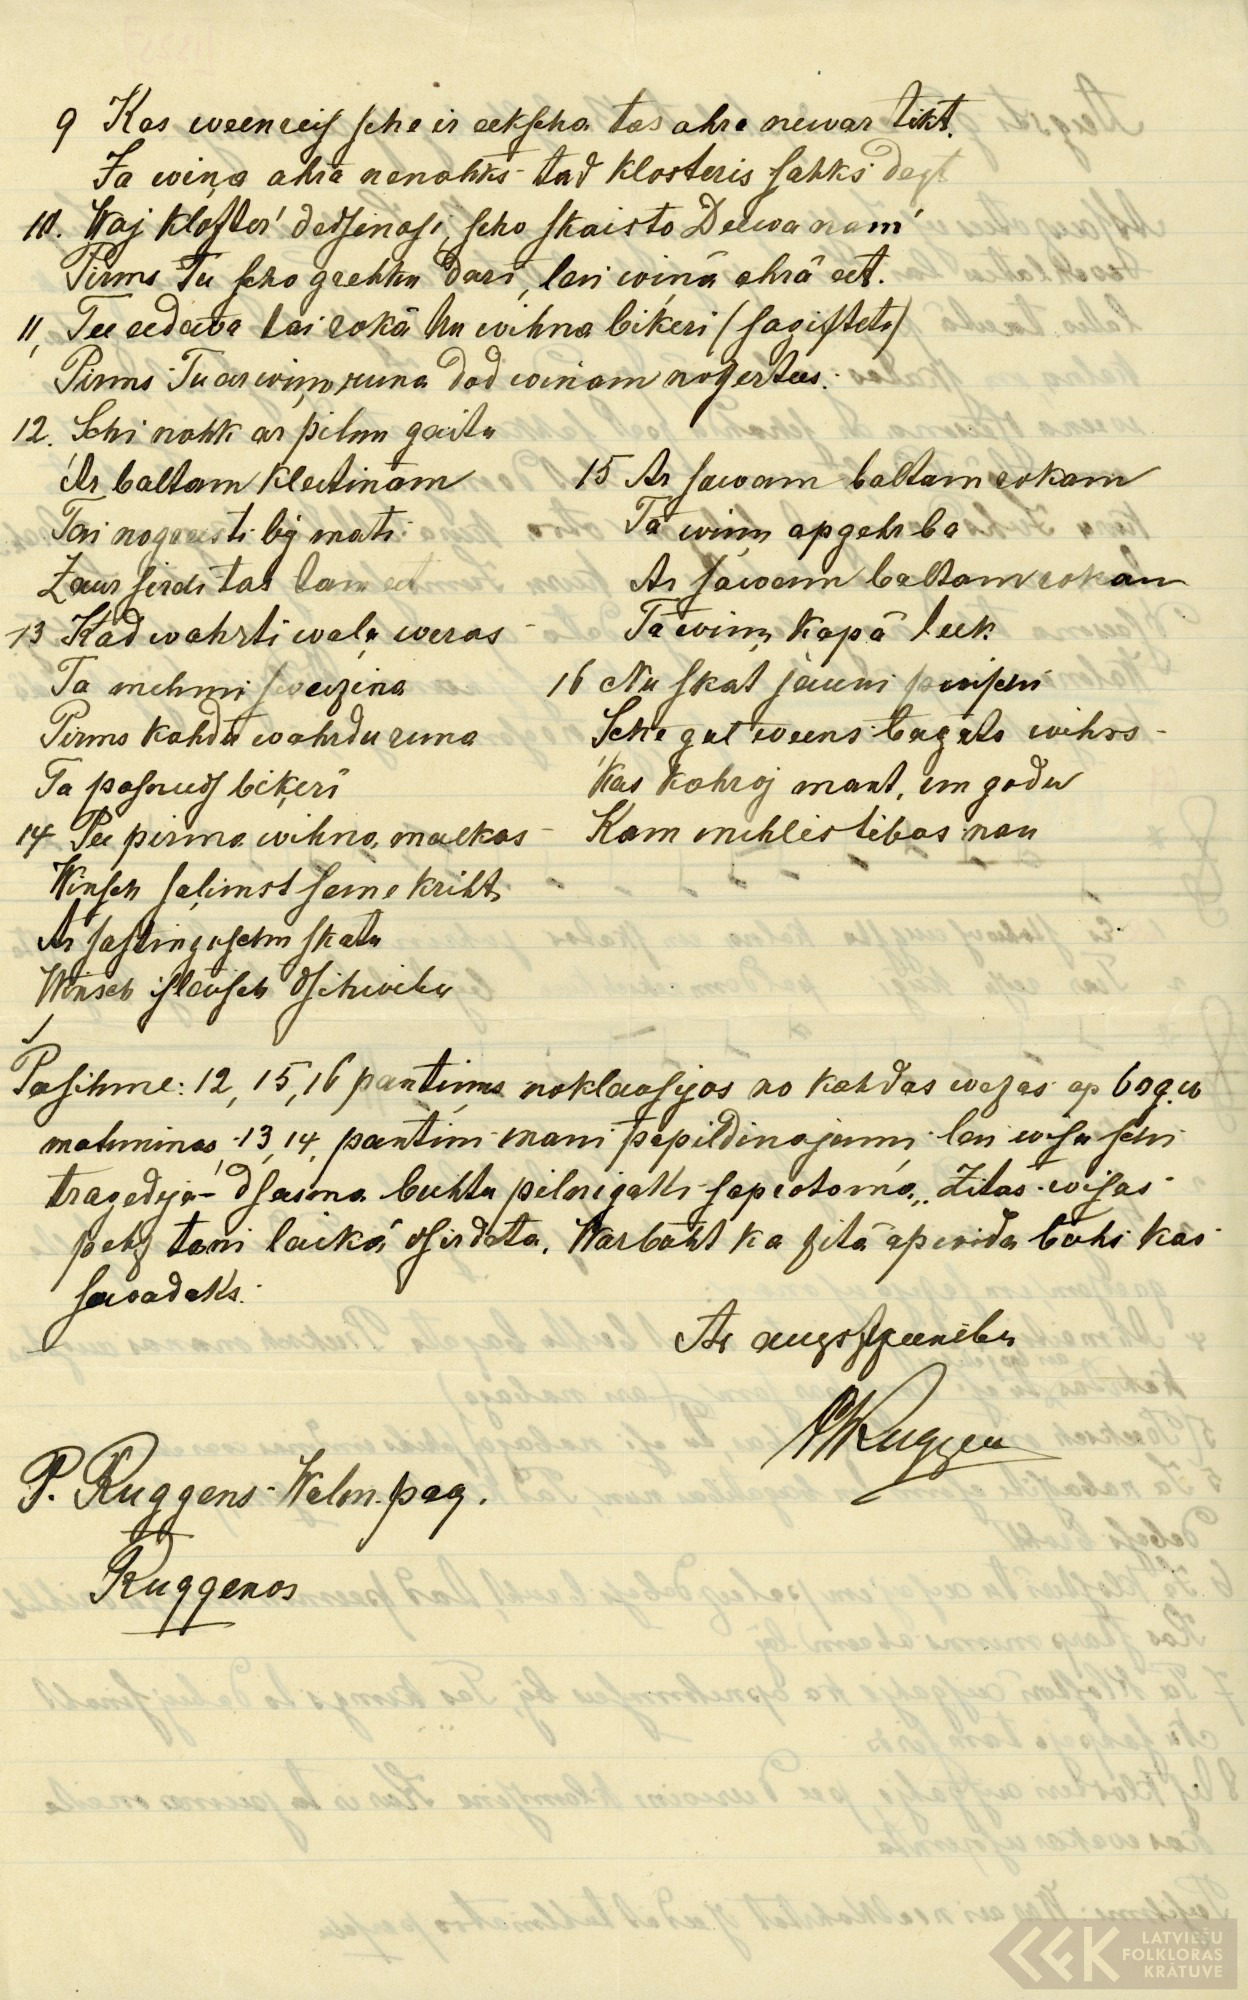 9 Kas weenreis sche ir eekscha tas ahra newar tikt.
Ja wiņa ahra nenahks - tad klosteris sahks degt
10. Waj kloster' dedsinasi, scho skaisto Deewa nam'
Pirms Tu scho grehku dari, lai wiņa ahrā eet.
11, Tee eedewa tai rokā  wihna biķeri (sagiftets)
Pirms Tu ar wiņu runa dod wiņam nogertees.
12. Schi nahk ar pilnu gaitu
Ar baltam kleitiņam
Tai nogreesti bij mati
Zaur sirdi tas tam eet
13 Kad wahrti waļa weras -
Ta mehmi sweizina
Pirms kahdu wahrdu runa
Ta pasneeds biķeri
14 Pee pirma wihna malkas -
Winsch saļimst seme kriht,
Ar sastingušchu skatu
Winsch islaisch dsihwibu
15 Ar sawam baltam rokam
Ta wiņu apgehrba
Ar sawam baltam rokam
Ta wiņu kapā leek
16 Nu skat jauni puischi
Sche guļ weens bagats wihrs -
Kas kahroj mant, un godu
Kam mihlestibas nau
Pasihme: 12, 15, 16 pantiņus noklausijos no kahdas wezas ap 60 g. w
mahmiņas, 13, 14, pantiņi mani papildinajumi lai wisa schi
tragedija - dseesma buhtu pilnigaki saprotama. Zitas wisas
pehz tam laikā dsirdeta. Warbuht ka zitā apwidu buhs kas
sawadaks.
Ar augstzeenibu
PRuggen
P. Ruggens - Walm. pag.
Ruggenos
LATVIEŠU
FOLKLORAS
KRĀTUVE